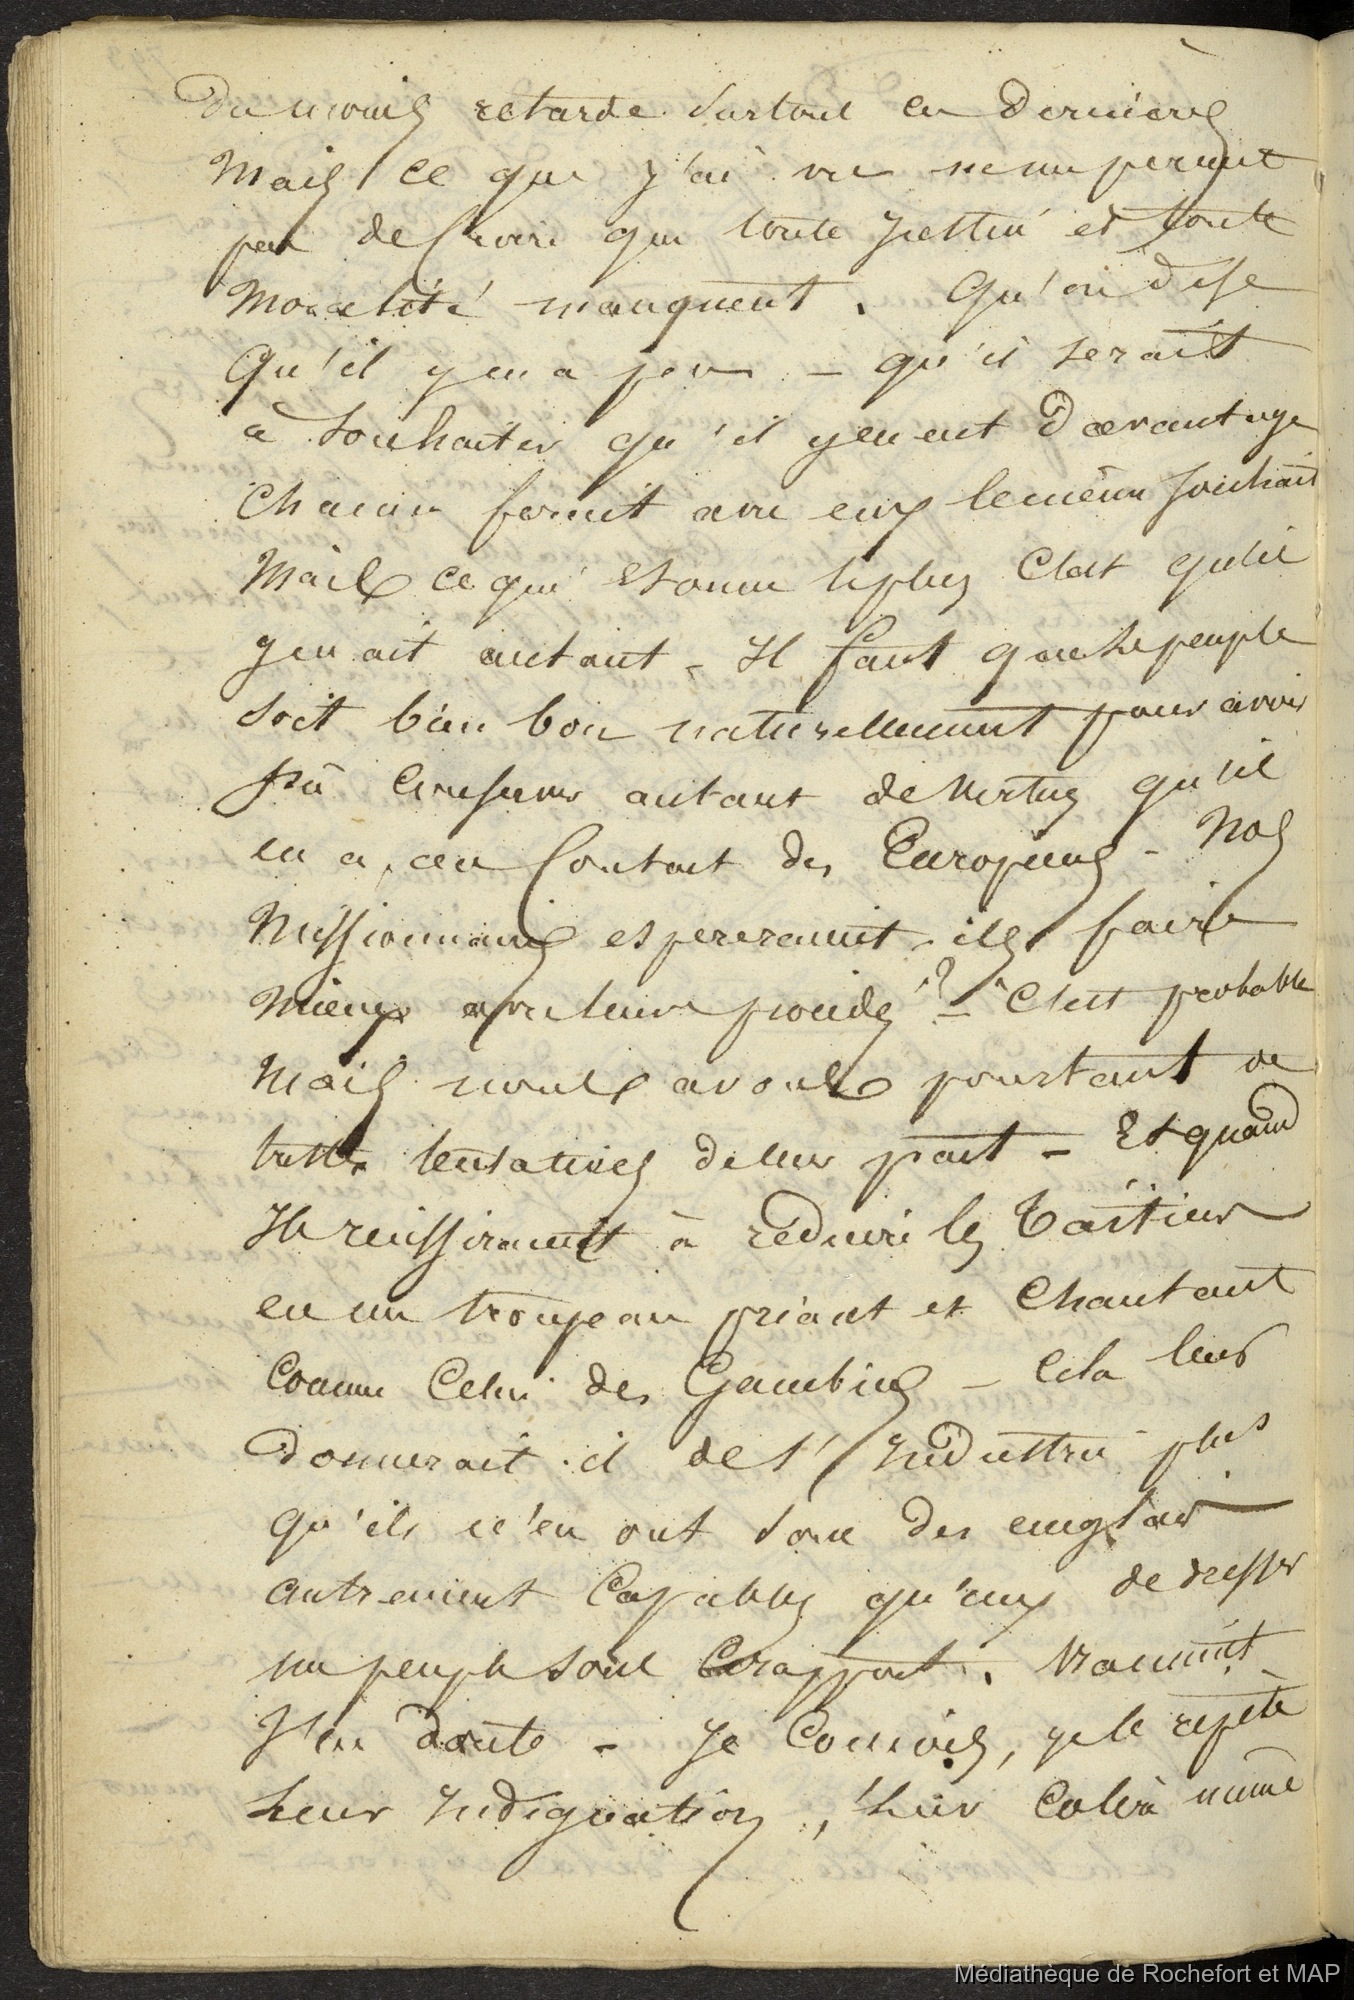 Du moins retarde surtout ces dernières
Mais ce que j'ai vu ne me permet
pas de Croire que toute Justice et toute
Moralité manquent. Qu'on dise
Qu'il y en a peu — qu'il serait
à souhaiter qu'il y en eut Davantage
Chacun ferait avec eux le même souhait
Mais ce qui Etonne le plus C'est qu'il
y en ait autant — Il faut que le peuple
soit bien bon naturellement pour avoir
pû Conserver autant de vertus qu'il
en a, au Contact des Européens — Nos
Missionnaires espereraient-ils faire
Mieux avec leurs procédés ? — C'est probable
Mais nous avons pourtant de
tristes tentatives de leur part — Et quand
Ils reussiraient à réduire les Taïtiens
en un troupeau priant et Chantant
Comme Celui des Gambiers — Cela leur
donnerait-il de l'Industrie plus
qu'ils n'en ont sous des anglais
autrement Capables qu'eux de dresser
un peuple sous Ce rapport. Vraiment
J'en doute — Je Connois, je le repète
Leur Indignation, leur Colère même